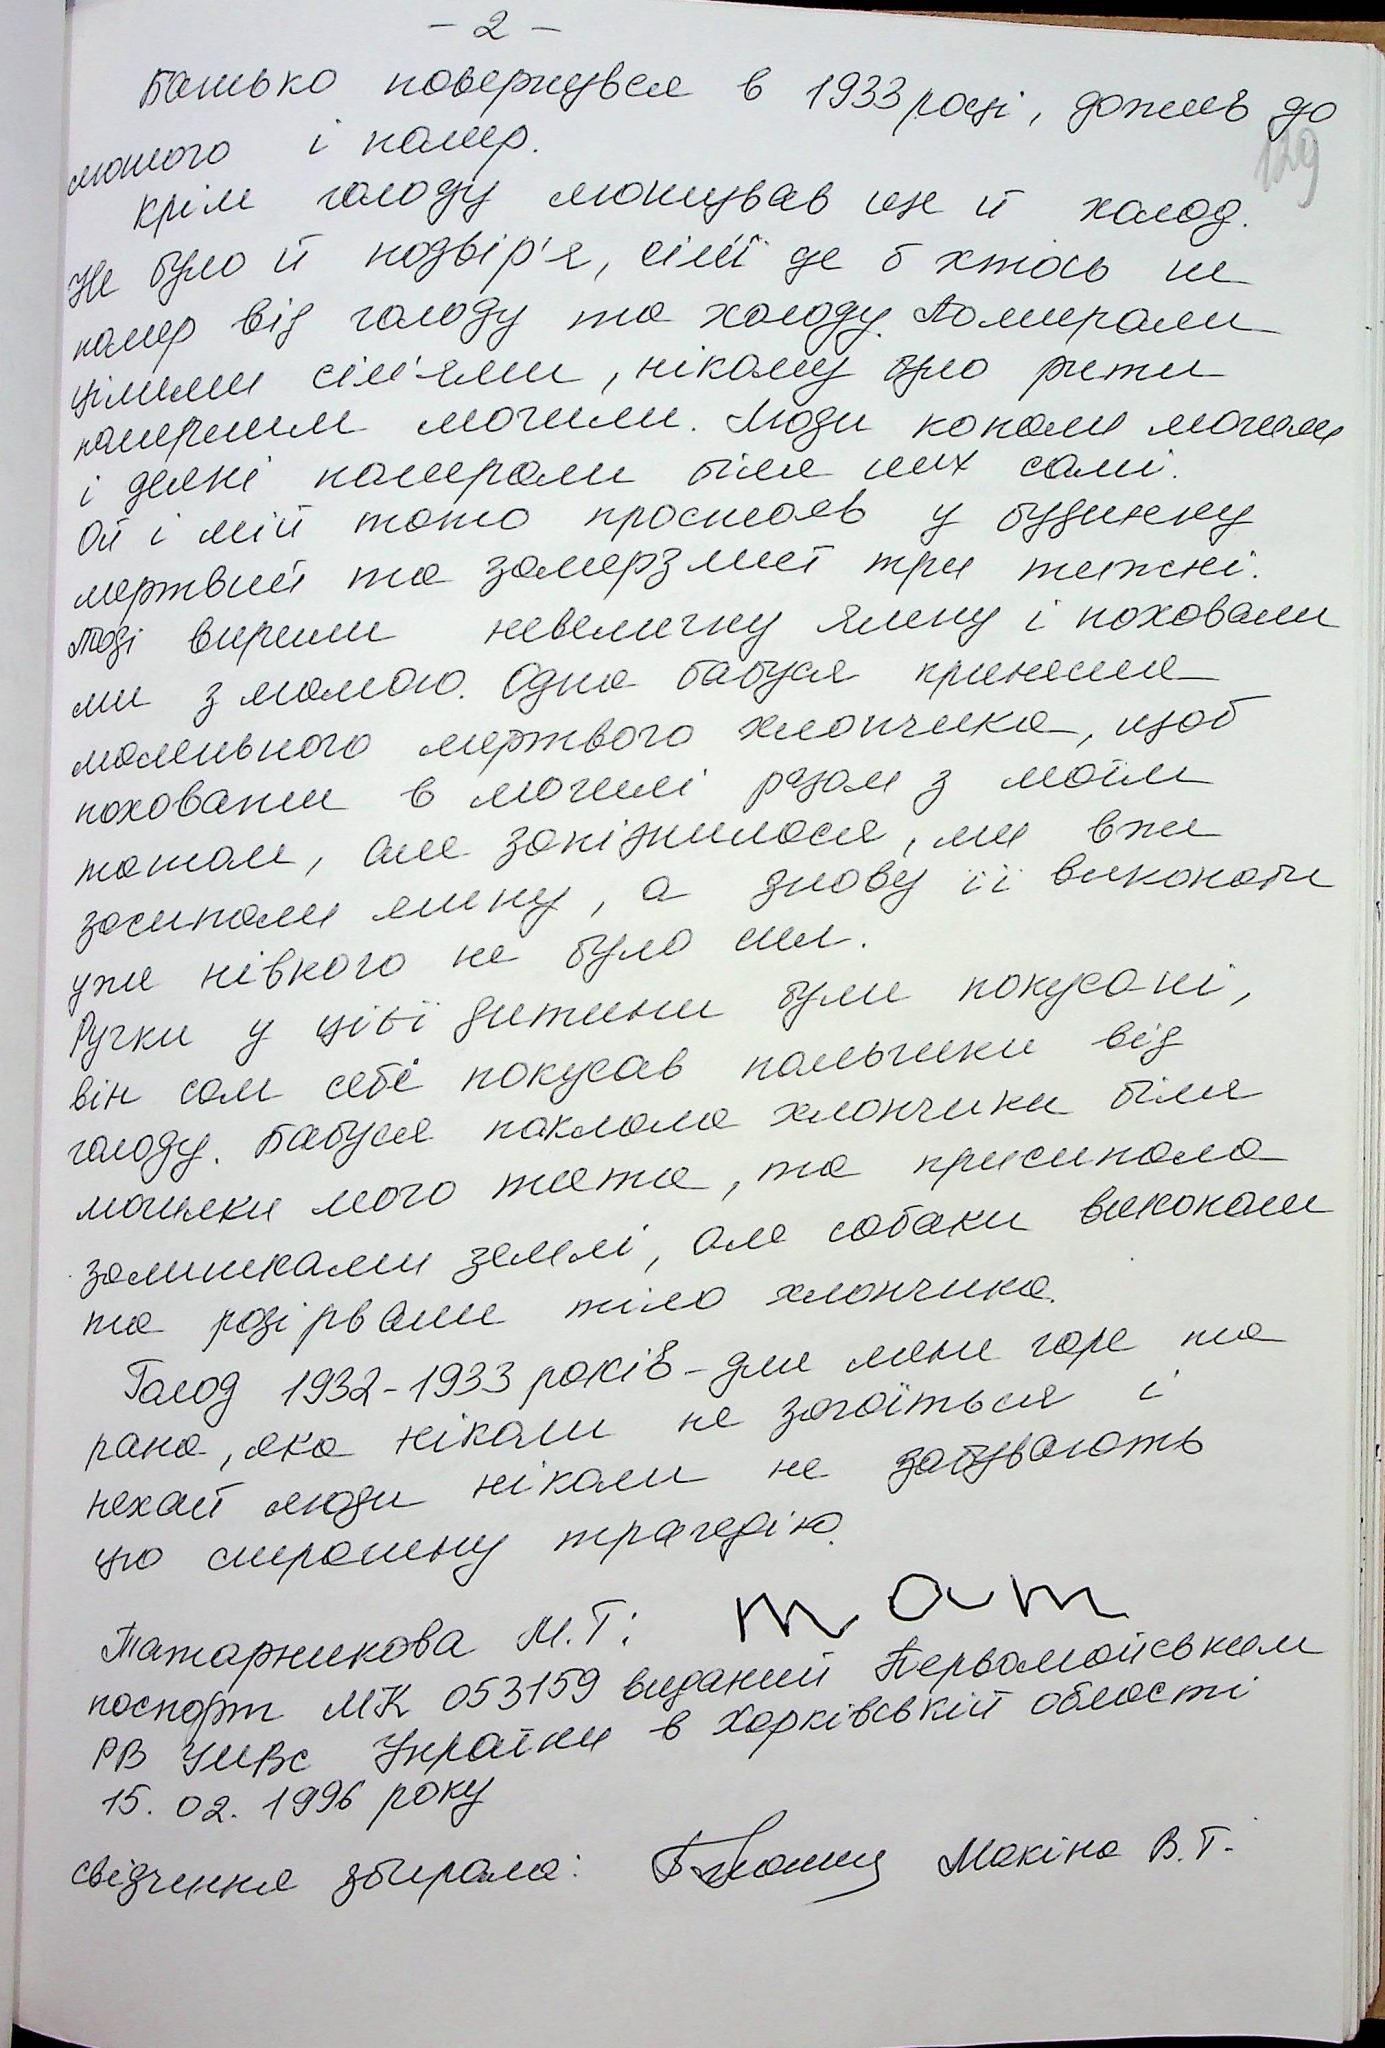 - 2 -
Батько повернувся в 1933 році, дожив до
129
лютого і помер.
Крім голоду лютував ще й холод.
Не було й подвір'я, сім'ї де б хтось не
помер від голоду та холоду. Помирали
цілими сім'ями, нікому було рити
померлим могили. Люди копали могили
і деякі помирали біля них самі.
Ой і мій тато простояв у будинку
мертвий та замерзлий три тижні.
Тоді вирили невеличку ямку і поховали
ми з мамою. Одна бабуся принесла
маленького мертвого хлопчика, щоб
поховати в могилі разом з моїм
татом, але запізнилася, ми вже
засипали ямку, а знову її викопати
уже нівкого не було сил.
Ручки у цієї дитини були покусані,
він сам себе покусав пальчики від
голоду. Бабуся поклала хлопчика біля
могилки мого тата, та присипала
залишками землі, але собаки викопали
та розірвали тіло хлопчика.
Голод 1932-1933 років - для мене горе та
рана, яка ніколи не загоїться і
нехай люди ніколи не забувають
цю страшну трагедію.
Татарникова М.Т: тат
паспорт МК 053159 виданий Первомайським
РВ УМВС України в Харківській області
15.02.1996 року
свідчення збирала: Макіна В.Г.